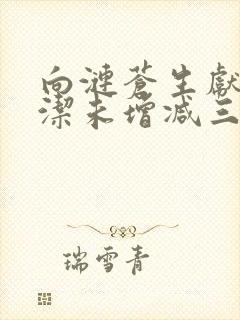 向漣蒼生獻
潔未增減三
瑞雪青